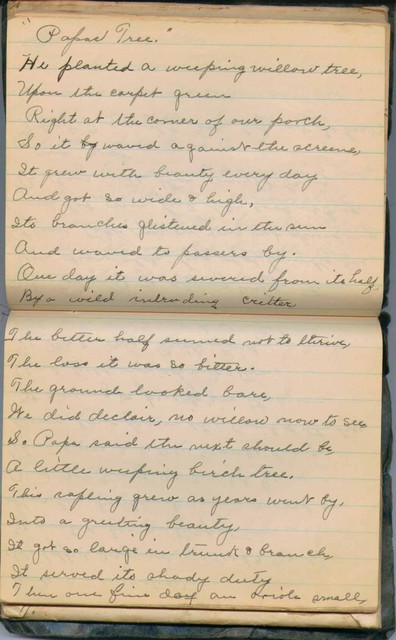 "Papas Tree."
He planted a weeping willow tree,
Upon the carpet green
Right at the corner of our porch,
So it waved against the screene,
It grew with beauty every day
And got so wide & high,
Its branches glistened in the sun
And waved to passers by.
One day it was severed from its half
By a wild intruding critter
The better half seemed not to thrive,
The loss it was so bitter.
The ground looked bare,
We did declair, no willow now to see
So Papa said the next should be,
A little weeping birch tree.
This sapling grew as years went by,
Into a greeting beauty,
It got so large in trunk & branch,
It served its shady duty
Then one fine day an oriole small,